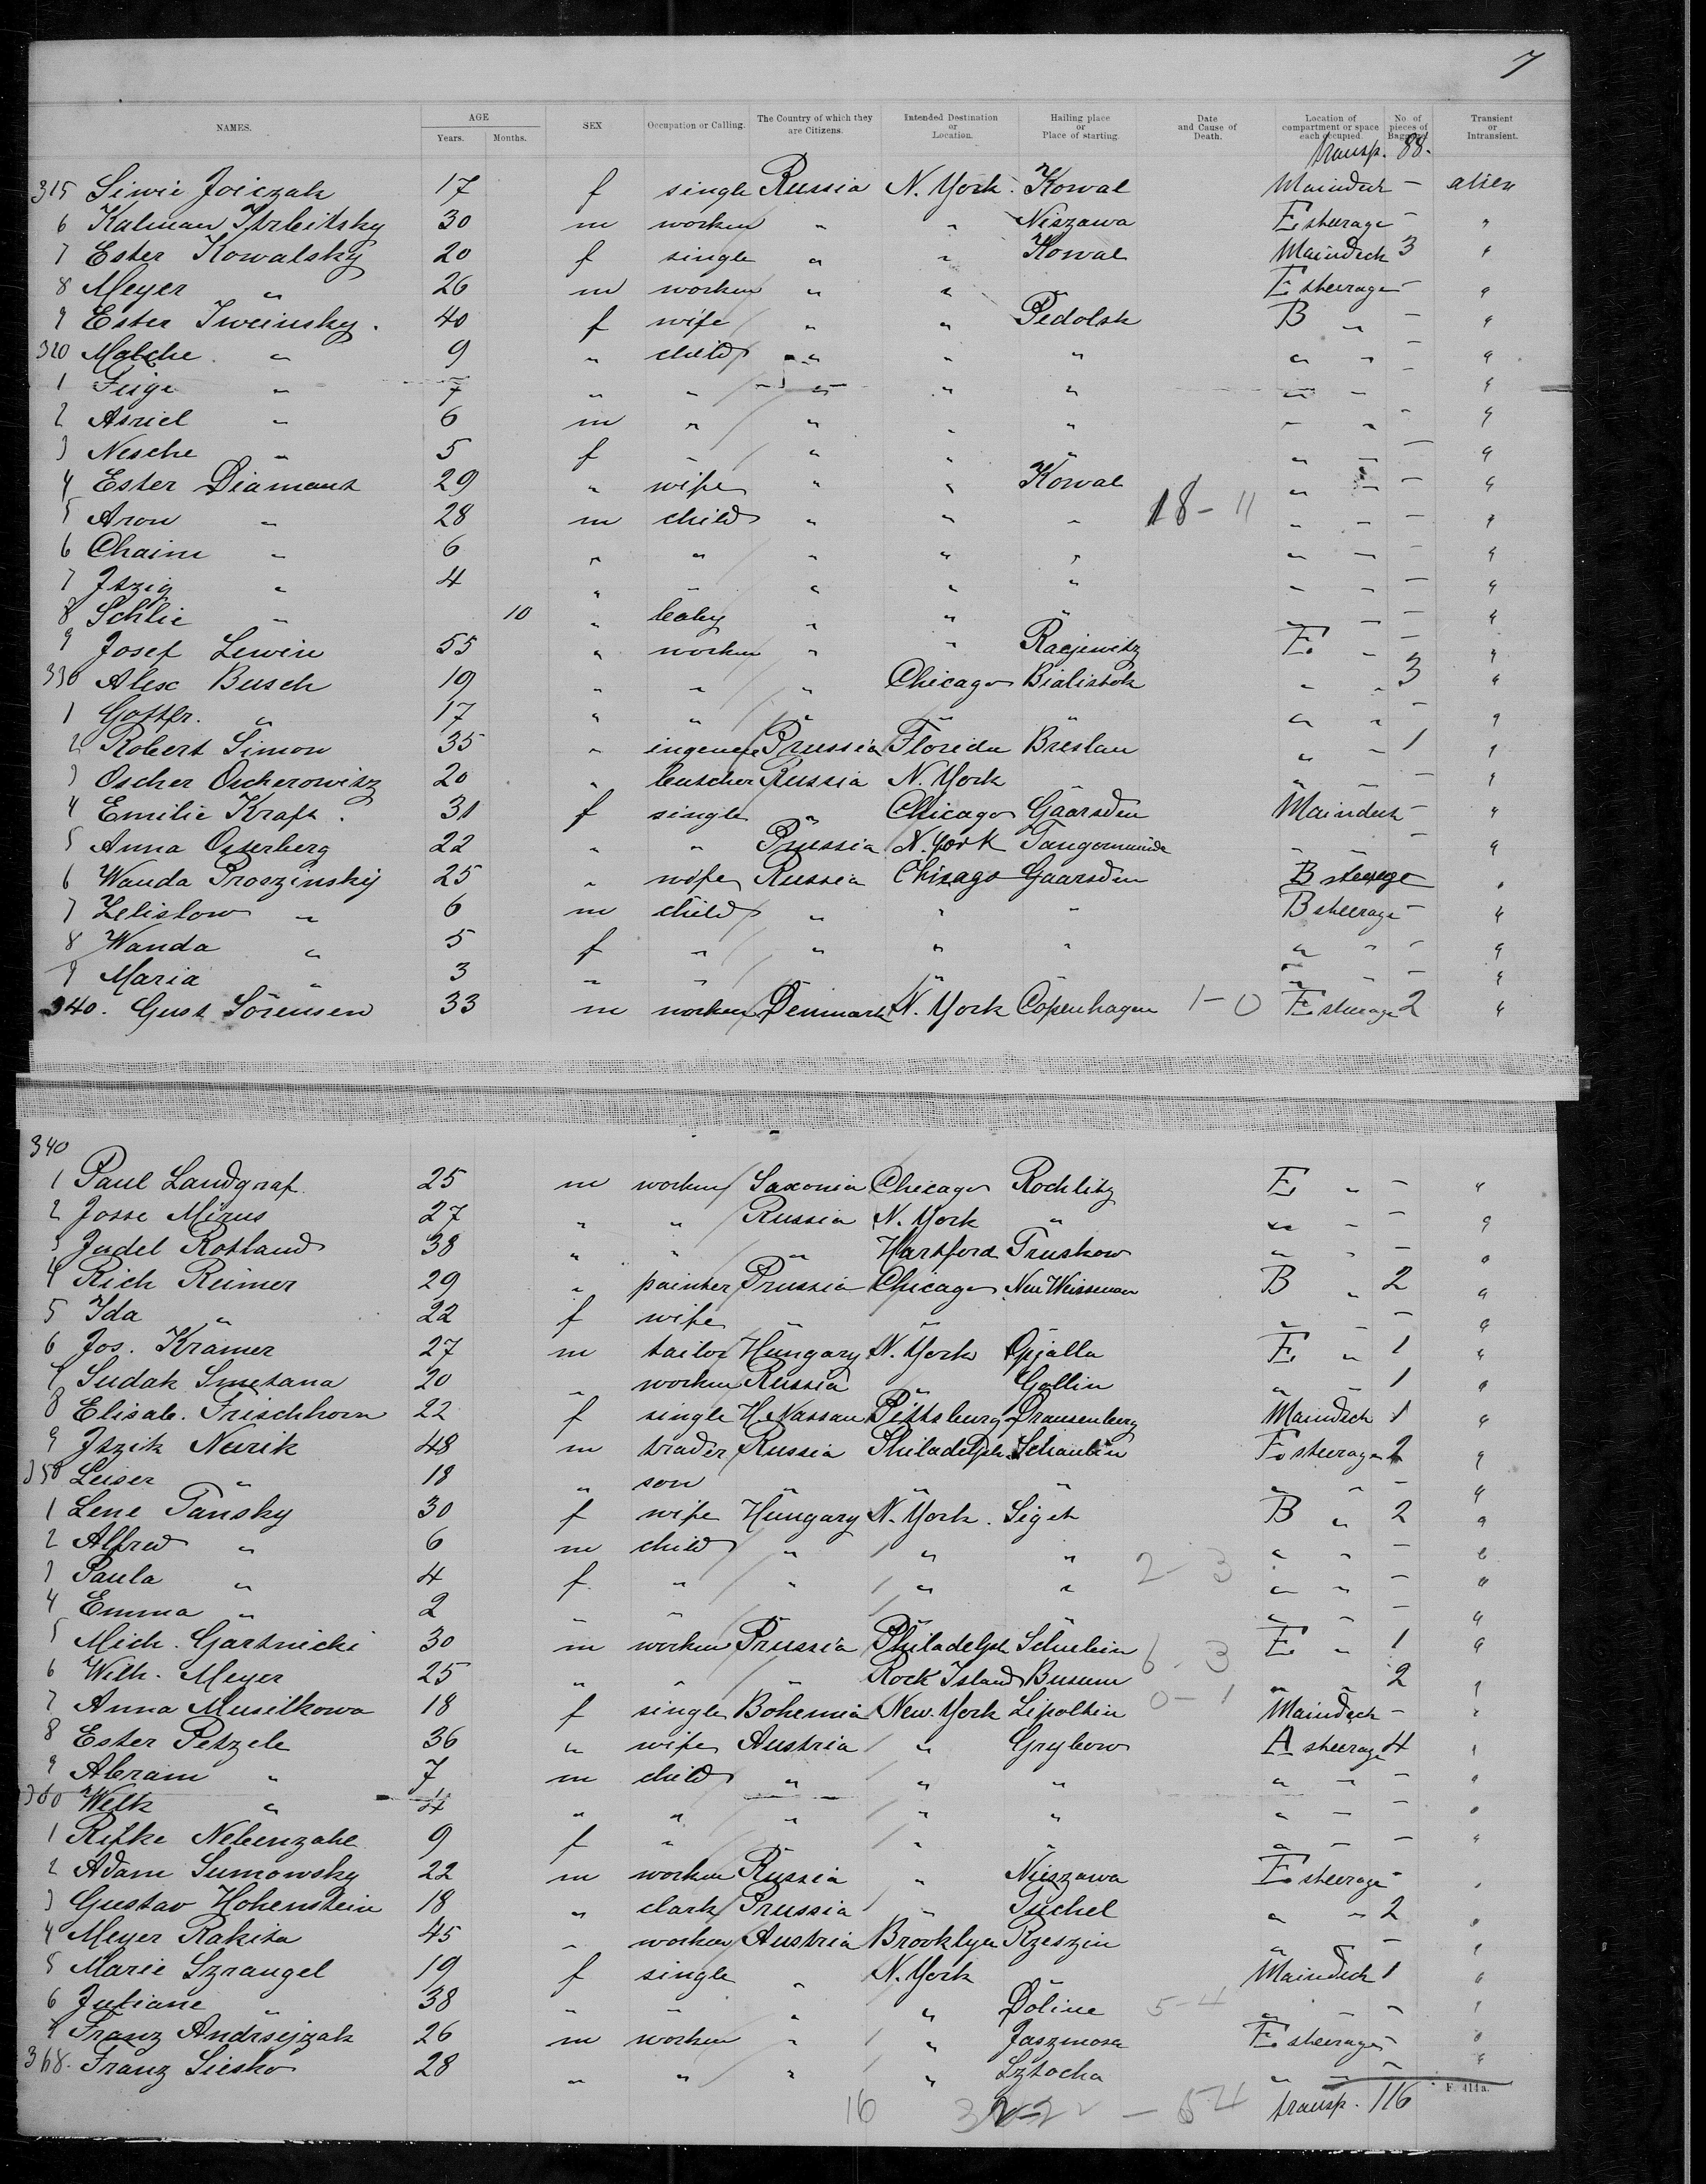 7
NAMES. AGE Years. Months. SEX Occupation or Calling. The Country of which they are Citizens. Intended Destination or Location. Hailing place or Place of starting. Date and Cause of Death. Location of compartment or space each occupied. No of pieces of Baggage. Transient or Intransient.
transp. 88.
315 Siwie Joiczak 17 f single Russia N. York. Kowal Maindeck — alien
6 Kalman 30 m worken " " Niszawa E steerage — "
7 Ester Kowalsky 20 f single " " Kowal Maindeck 3 "
8 Meyer " 26 m worken " " E steerage — "
9 Ester Iweinsky. 40 f wife " " Pedolsk B " — "
320 Malche " 9 " child " " " " " — "
1 Feige " 7 " " " " " " " — "
2 Asriel " 6 m " " " " " " - "
3 Nesche " 5 f " " " " " " — "
4 Ester Diamant 29 " wife " " Kowal " " — "
5 Aron " 28 m child " " " 18 - 11 " " — "
6 Chaim " 6 " " " " " " " — "
7 Itzig " 4 " " " " " " " — "
8 Schlie " 10 " baby " " " " " — "
9 Josef Lewin 55 " worken " " Racjewitz E. " — "
330 Alex Busch 19 " " " Chicago Bialistok " " 3 "
1 Gottfr. " 17 " " " " " " " — "
2 Robert Simon 35 " ingeneer Prussia Florida Breslau " " 1 "
3 Oscher Oscherowitz 20 " butscher Russia N. York " " " — "
4 Emilie Kraft. 31 f single " Chicago Gaarsden Maindeck — "
5 Anna Osterberg 22 " " Prussia N. York Tangermünde " — "
6 Wanda Proszinskij 25 " wife Russia Chicago Gaarsden B steerage "
7 Zelislow " 6 m child " " " B steerage — "
8 Wanda " 5 f " " " " " " - "
9 Maria " 3 " " " " " " " — "
340. Gust Sörensen 33 m worken Denmark N. York Copenhagen 1-0 E steerage 2 "
340
1 Paul Landgraf 25 m worken Saxonia Chicago Rochlitz E " — "
2 Josse Mirus 27 " " Russia N. York " " " — "
3 Judel Rotland 38 " " " Hartford Truskow " " — "
4 Rich Reimer 29 " painter Prussia Chicago B " 2 "
5 Ida " 22 f wife " " " " " — "
6 Jos. Kramer 27 m tailor Hungary N. York Opjalla E " 1 "
7 Sudak Smetana 20 " worken Russia " Gollin " " 1 "
8 Elisab. Frischhorn 22 f single H. Nassau Pittsburg Maindeck 1 "
9 Itzik Newik 48 m trader Russia Philadelph. E steerage 2 "
350 Leiser " 18 " son " " " " " — "
1 Lene Tansky 30 f wife Hungary N. York. Siget B " 2 "
2 Alfred " 6 m child " " " " " — "
3 Paula " 4 f " " " " 2-3 " " — "
4 Emma " 2 " " " " " " " — "
5 Mich. Gartnicki 30 m worken Prussia Philadelph Schubin 6-3 E " 1 "
6 Wilh. Meyer 25 " " " Rock Island Busum " " 2 "
7 Anna Musilkowa 18 f single Bohemia New York Lipoltin 0-1 Maindeck — "
8 Ester Petzele 36 " wife Austria " Grybow A steerage 4 "
9 Abram " 7 m child " " " " " — "
360 Welk " 4 " " " " " " " — "
1 Rifke Nebenzahl 9 f " " " " " " — "
2 Adam Sumowsky 22 m worken Russia " Nieszawa E steerage - "
3 Gustav Hohenstein 18 " clark Prussia " Tuchel " " 2 "
4 Meyer Rakita 45 " worken Austria Brooklyn Rzeszin " " — "
5 Marie Szrangel 19 f single " N. York " Maindeck 1 "
6 Juliane " 38 " " " " Doline 5-4 " " — "
7 Franz Andrsejzak 26 m worken " " Jaszmosa E steerage — "
368. Franz Siesko 28 " " " " Sztocha " " — "
F. 414a.
16 — 54 transp. 116